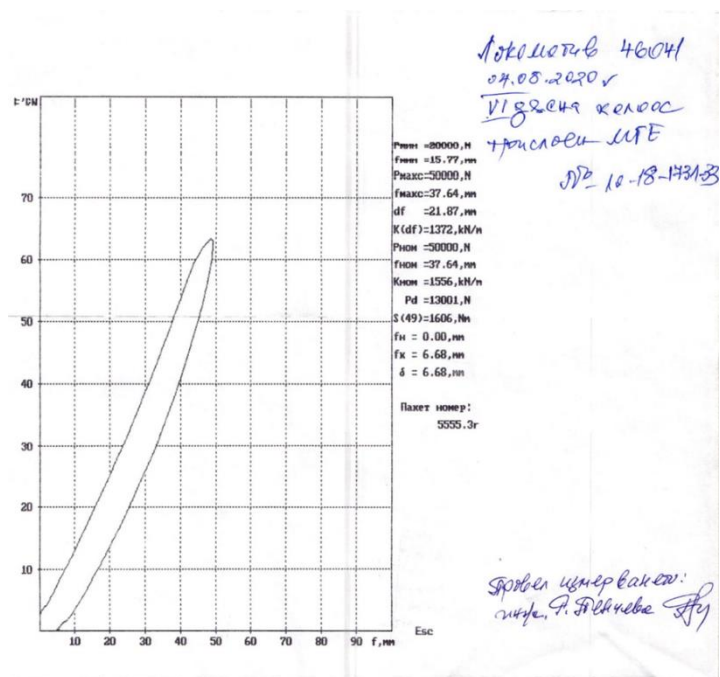 Локомотив 46041
04.08.2020 г
VI дясна колоос
F,кN
70
60
50
40
30
20
10
10 20 30 40 50 60 70 80 90 f,мм
Рмин =20000,N
fмин =15.77,мм
Рмакс=50000,N
fмакс=37.64,мм
df =21.87,мм
K(df)=1372,kN/m
Рном =50000,N
fном =37.64,мм
Kном =1556,kN/m
Pd =13001,N
S(49)=1606,Nm
fн = 0.00,мм
fк = 6.68,мм
δ = 6.68,мм
Пакет номер:
5555.3г
Esc
Провел измерването:
инж.